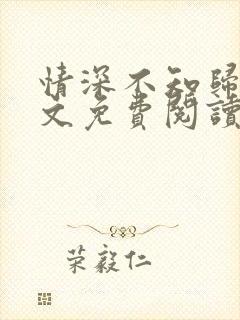 情深不知歸
文免費閱讀
荣毅仁